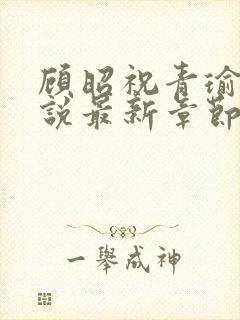 顾昭祝青瑜
說最新章節
一舉成神